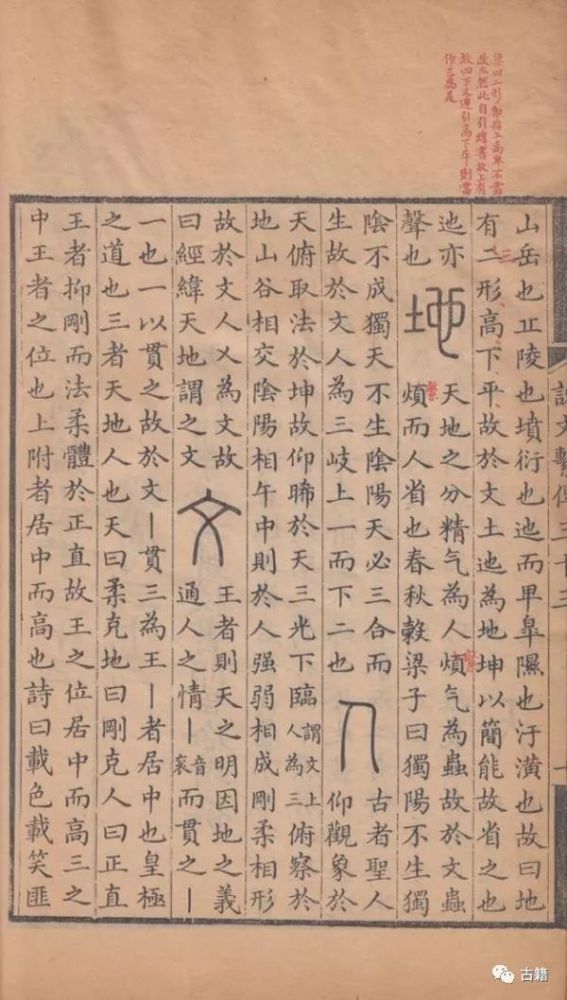 改三然此自引緯書故上有
故四下又連引高下平則當
作三為是
說文繫傳三十三
山岳也丘陵也墳衍也迆而卑皐隰也汙潢也故曰地
有二形高下平故於文土迆為地坤以簡能故省之也
三
迆亦
聲也
地
天地之分精气為人煩气為蟲故於文蟲
煩而人省也春秋穀梁子曰獨陽不生獨
陰不成獨天不生陰陽天必三合而
生故於文人為三岐上一而下二也
人
古者聖人
仰觀象於
天俯取法於坤故仰晞於天三光下臨謂文上人為三俯察於
地山谷相交陰陽相午中則於人强弱相成剛柔相形
故於文人乂為文故
曰經緯天地謂之文
文
王者則天之明因地之義
通人之情丨音衮而貫之丨
一也一以貫之故於文丨貫三為王丨者居中也皇極
之道也三者天地人也天曰柔克地曰剛克人曰正直
王者抑剛而法柔體於正直故王之位居中而高三之
中王者之位也上附者居中而高也詩曰載色載笑匪
古籍